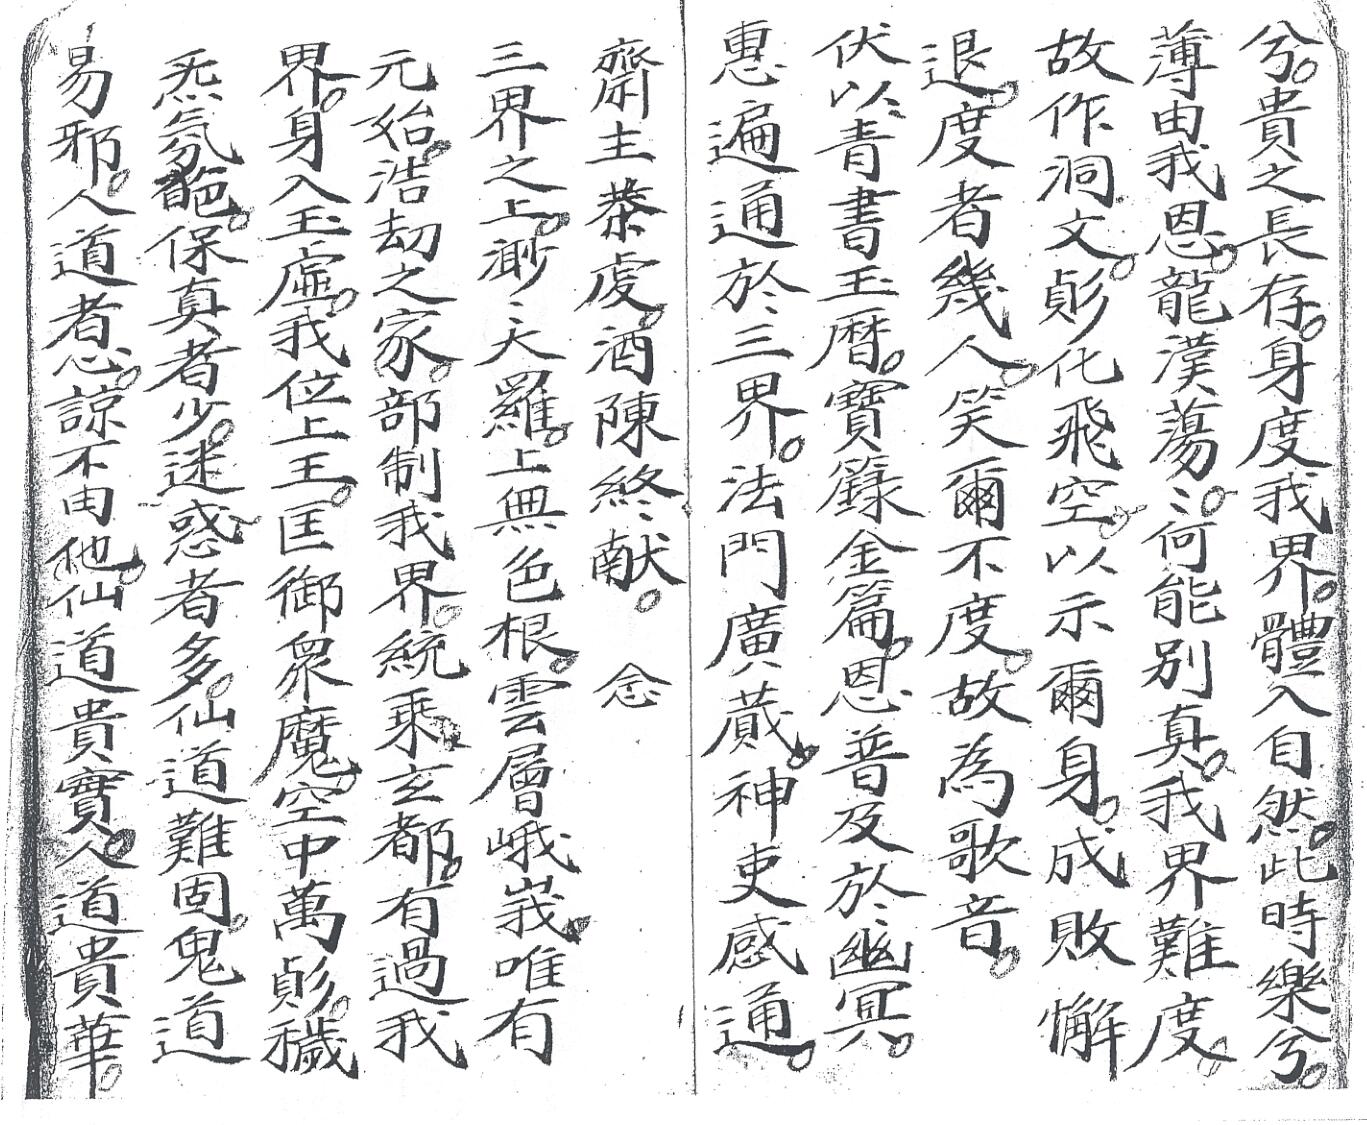 兮貴之長存身度我界體入自然此時樂兮
薄由我恩龍漢蕩〻何能別真我界難度
故作洞文㣎化飛空以示爾身成敗懈
退度者幾人笑爾不度故為歌音
伏以青書玉曆寶籙金篇恩普及於幽冥
惠遍通於三界法門廣蕆神吏感通
齋主恭虔酒陳終献 念
三界之上渺〻大羅上無色根雲層峨峩唯有
元始浩刼之家部制我界統乘玄都有過我
界身入玉虛我位上王匡御眾魔空中萬㣎穢
炁氛葩保真者少迷惑者多仙道難固鬼道
易邪人道者心諒不由他仙道貴實人道貴華